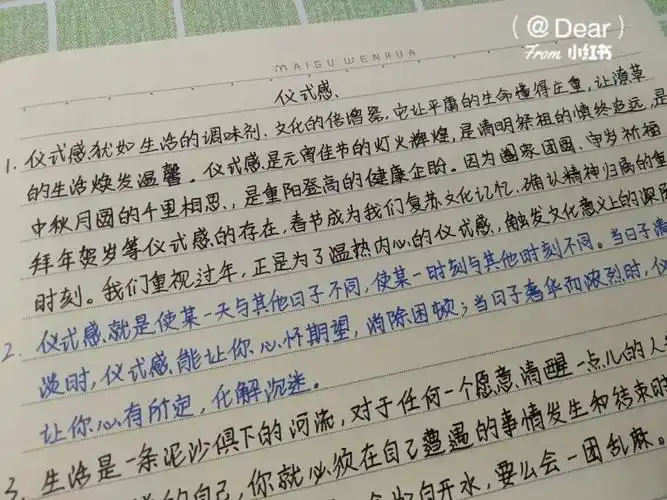 (@Dear)
From 小红书
MAIGU WENHUA
仪式感、
1. 仪式感犹如生活的调味剂、文化的倍增器，它让平庸的生命懂得庄重，让潦草
的生活焕发温馨。仪式感是元宵佳节的灯火辉煌，是清明祭祖的慎终追远，是
中秋月圆的千里相思，是重阳登高的健康企盼。因为阖家团圆、守岁祈福
拜年贺岁等仪式感的存在，春节成为我们复苏文化记忆、确认精神归属的重
时刻。我们重视过年，正是为了温热内心的仪式感，触发文化意义上的深层
2. 仪式感就是使某一天与其他日子不同，使某一时刻与其他时刻不同。当日子清
淡时，仪式感能让你心怀期望，消除困顿；当日子奢华而浓烈时，仪
让你心有所定，化解沉迷。
3. 生活是一条泥沙俱下的河流，对于任何一个愿意清醒一点儿的人
的自己，你就必须在自己遭遇的事情发生和结束时
白开水，要么会一团乱麻。